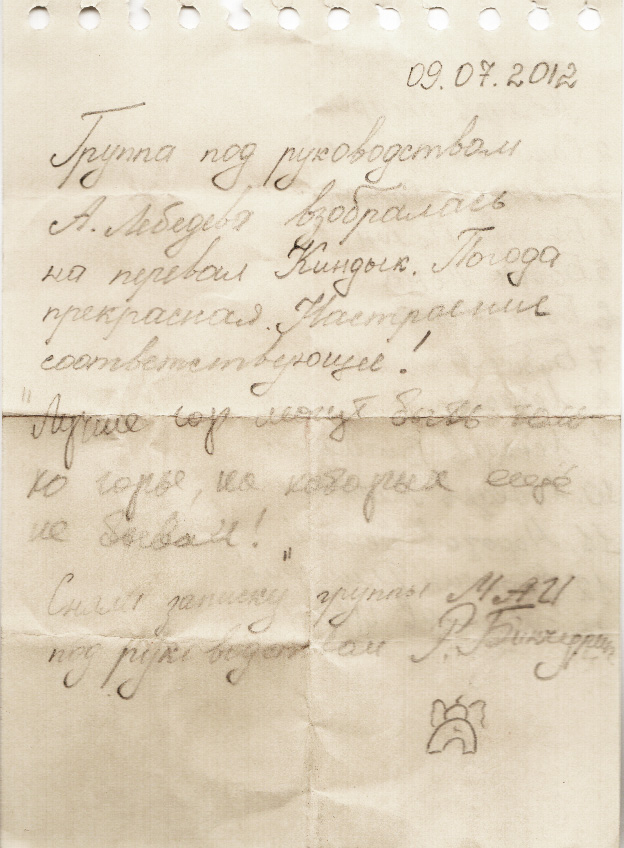 09.07.2012
Группа под руководством
А. Лебедева взобралась
на перевал Киндык. Погода
прекрасная. Настроение
соответствующее!
"Лучше гор могут быть толь-
ко горы, на которых ещё
не бывал!"
Сняли записку группы МАИ
под руководством Р.